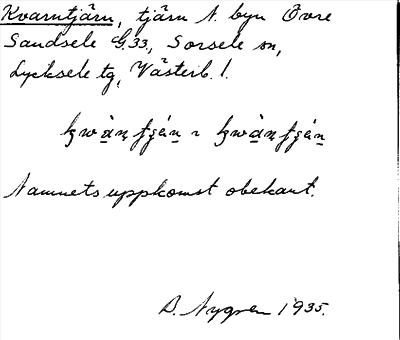 Kvarntjärn, tjärn N. byn Övre
Sandsele G.33, Sorsele sn,
Lycksele tg, Västerb. l.
Namnets uppkomst obekant.
D. Nygren 1935.